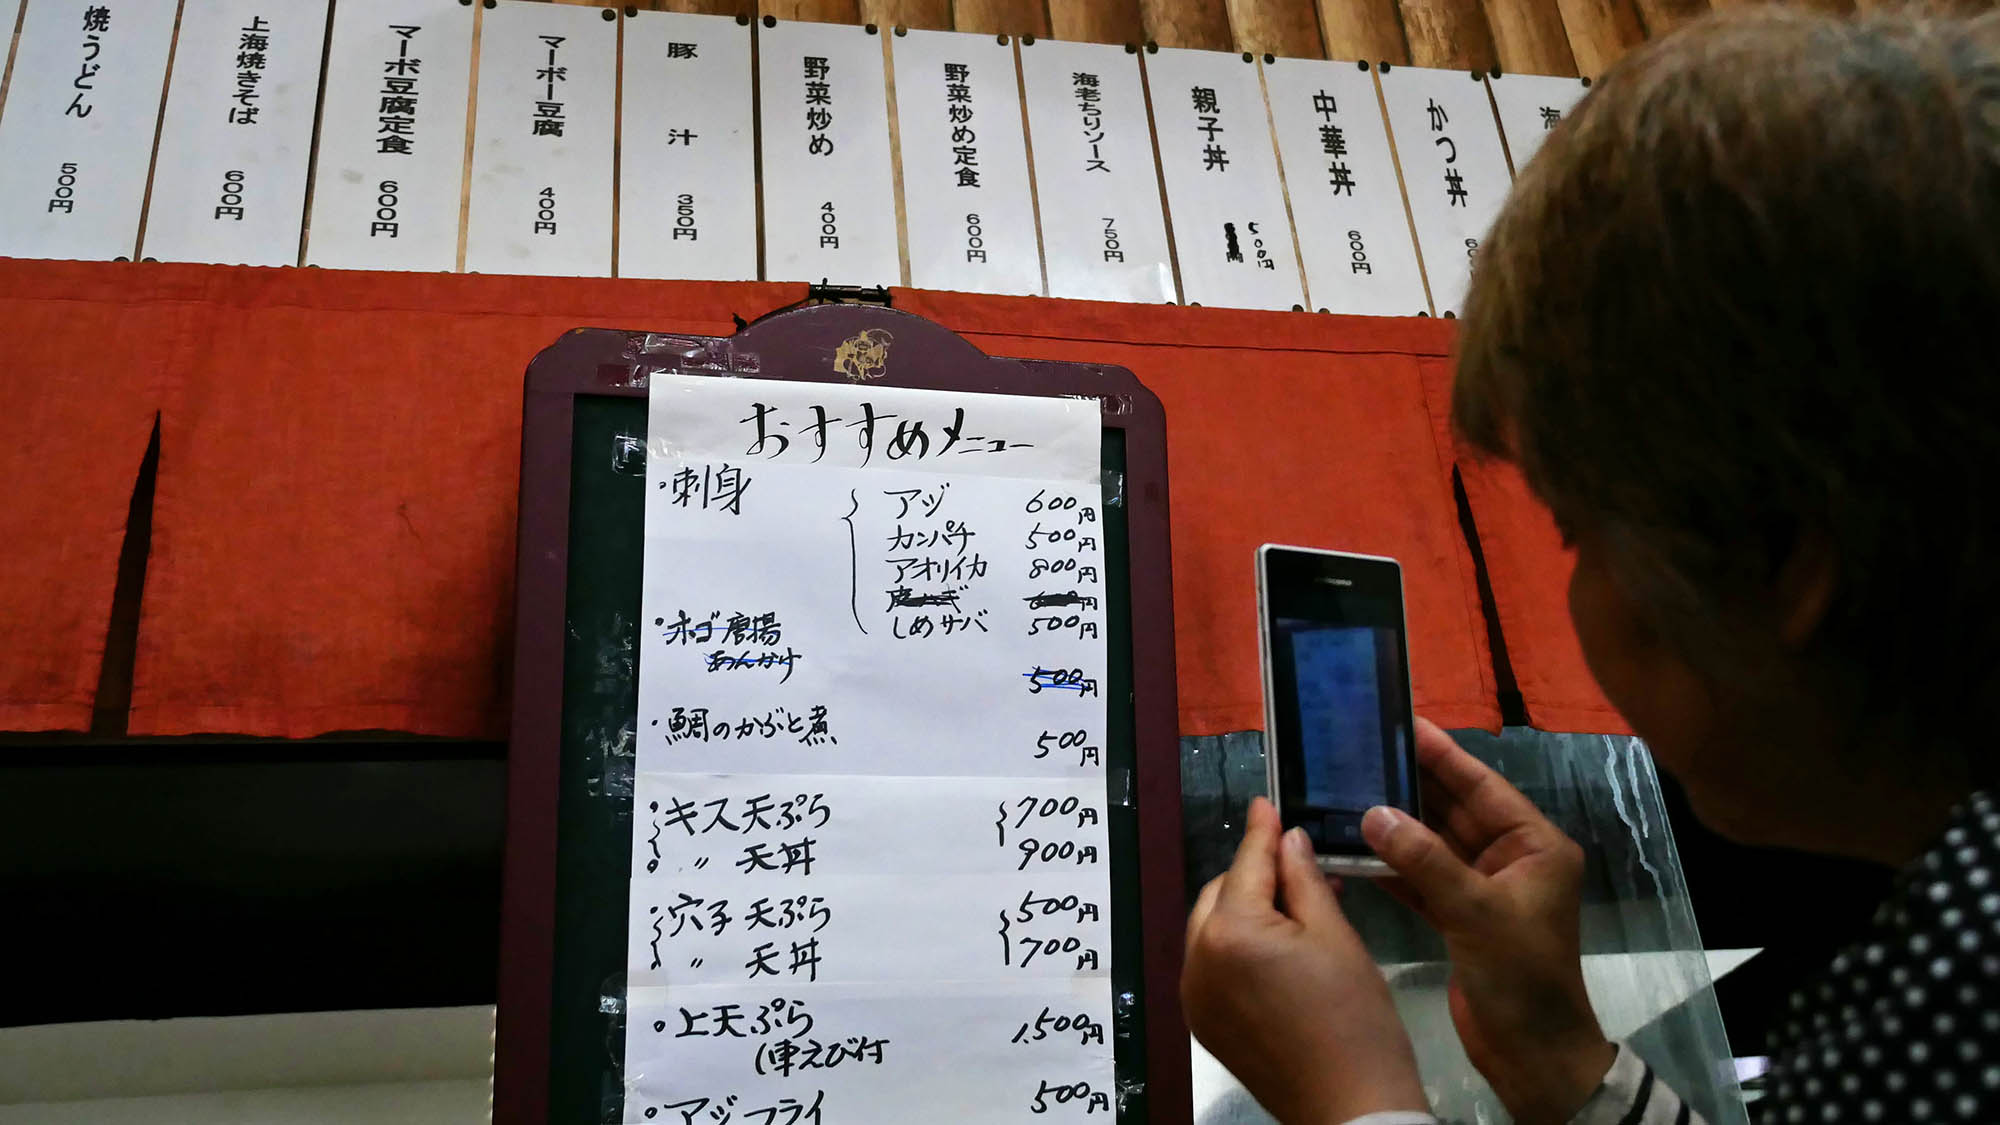 焼うどん 500円
上海焼きそば 600円
マーボ豆腐定食 600円
マーボー豆腐 400円
豚汁 350円
野菜炒め 400円
野菜炒め定食 600円
海老ちりソース 750円
親子丼 500円
中華丼 600円
かつ丼
海
おすすめメニュー
・刺身
アジ 600円
カンパチ 500円
アオリイカ 800円
しめサバ 500円
・ホゴ唐揚
あんかけ
500円
・鯛のかぶと煮 500円
・キス天ぷら 700円
〃 天丼 900円
・穴子天ぷら 500円
〃 天丼 700円
・上天ぷら 1,500円
(車えび付
・アジフライ 500円